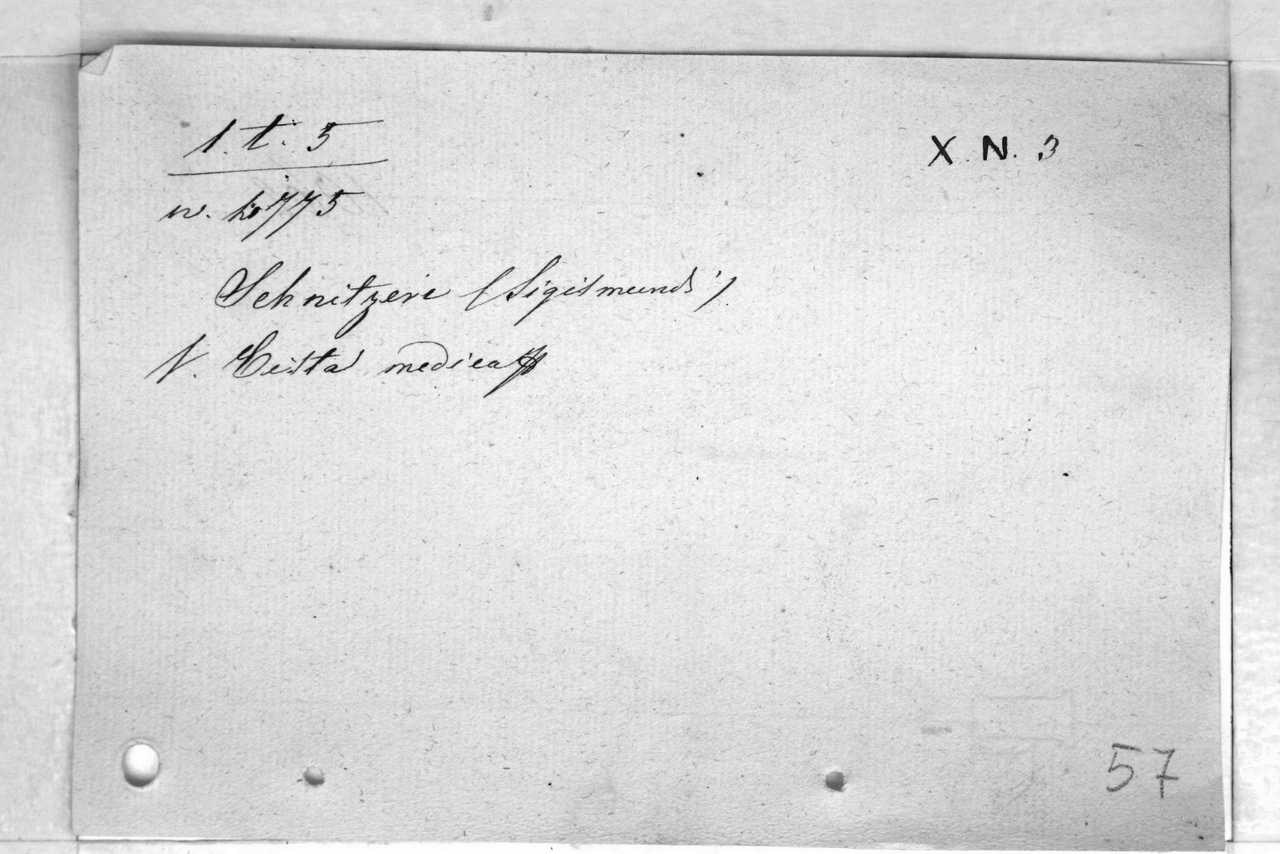 1. t. 5
X. N. 3
Schnitzeri (Sigismundi)
V. Cista medica
57